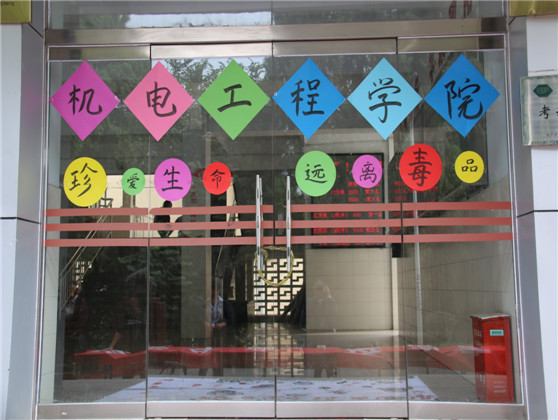 机电工程学院
珍爱生命 远离毒品
考